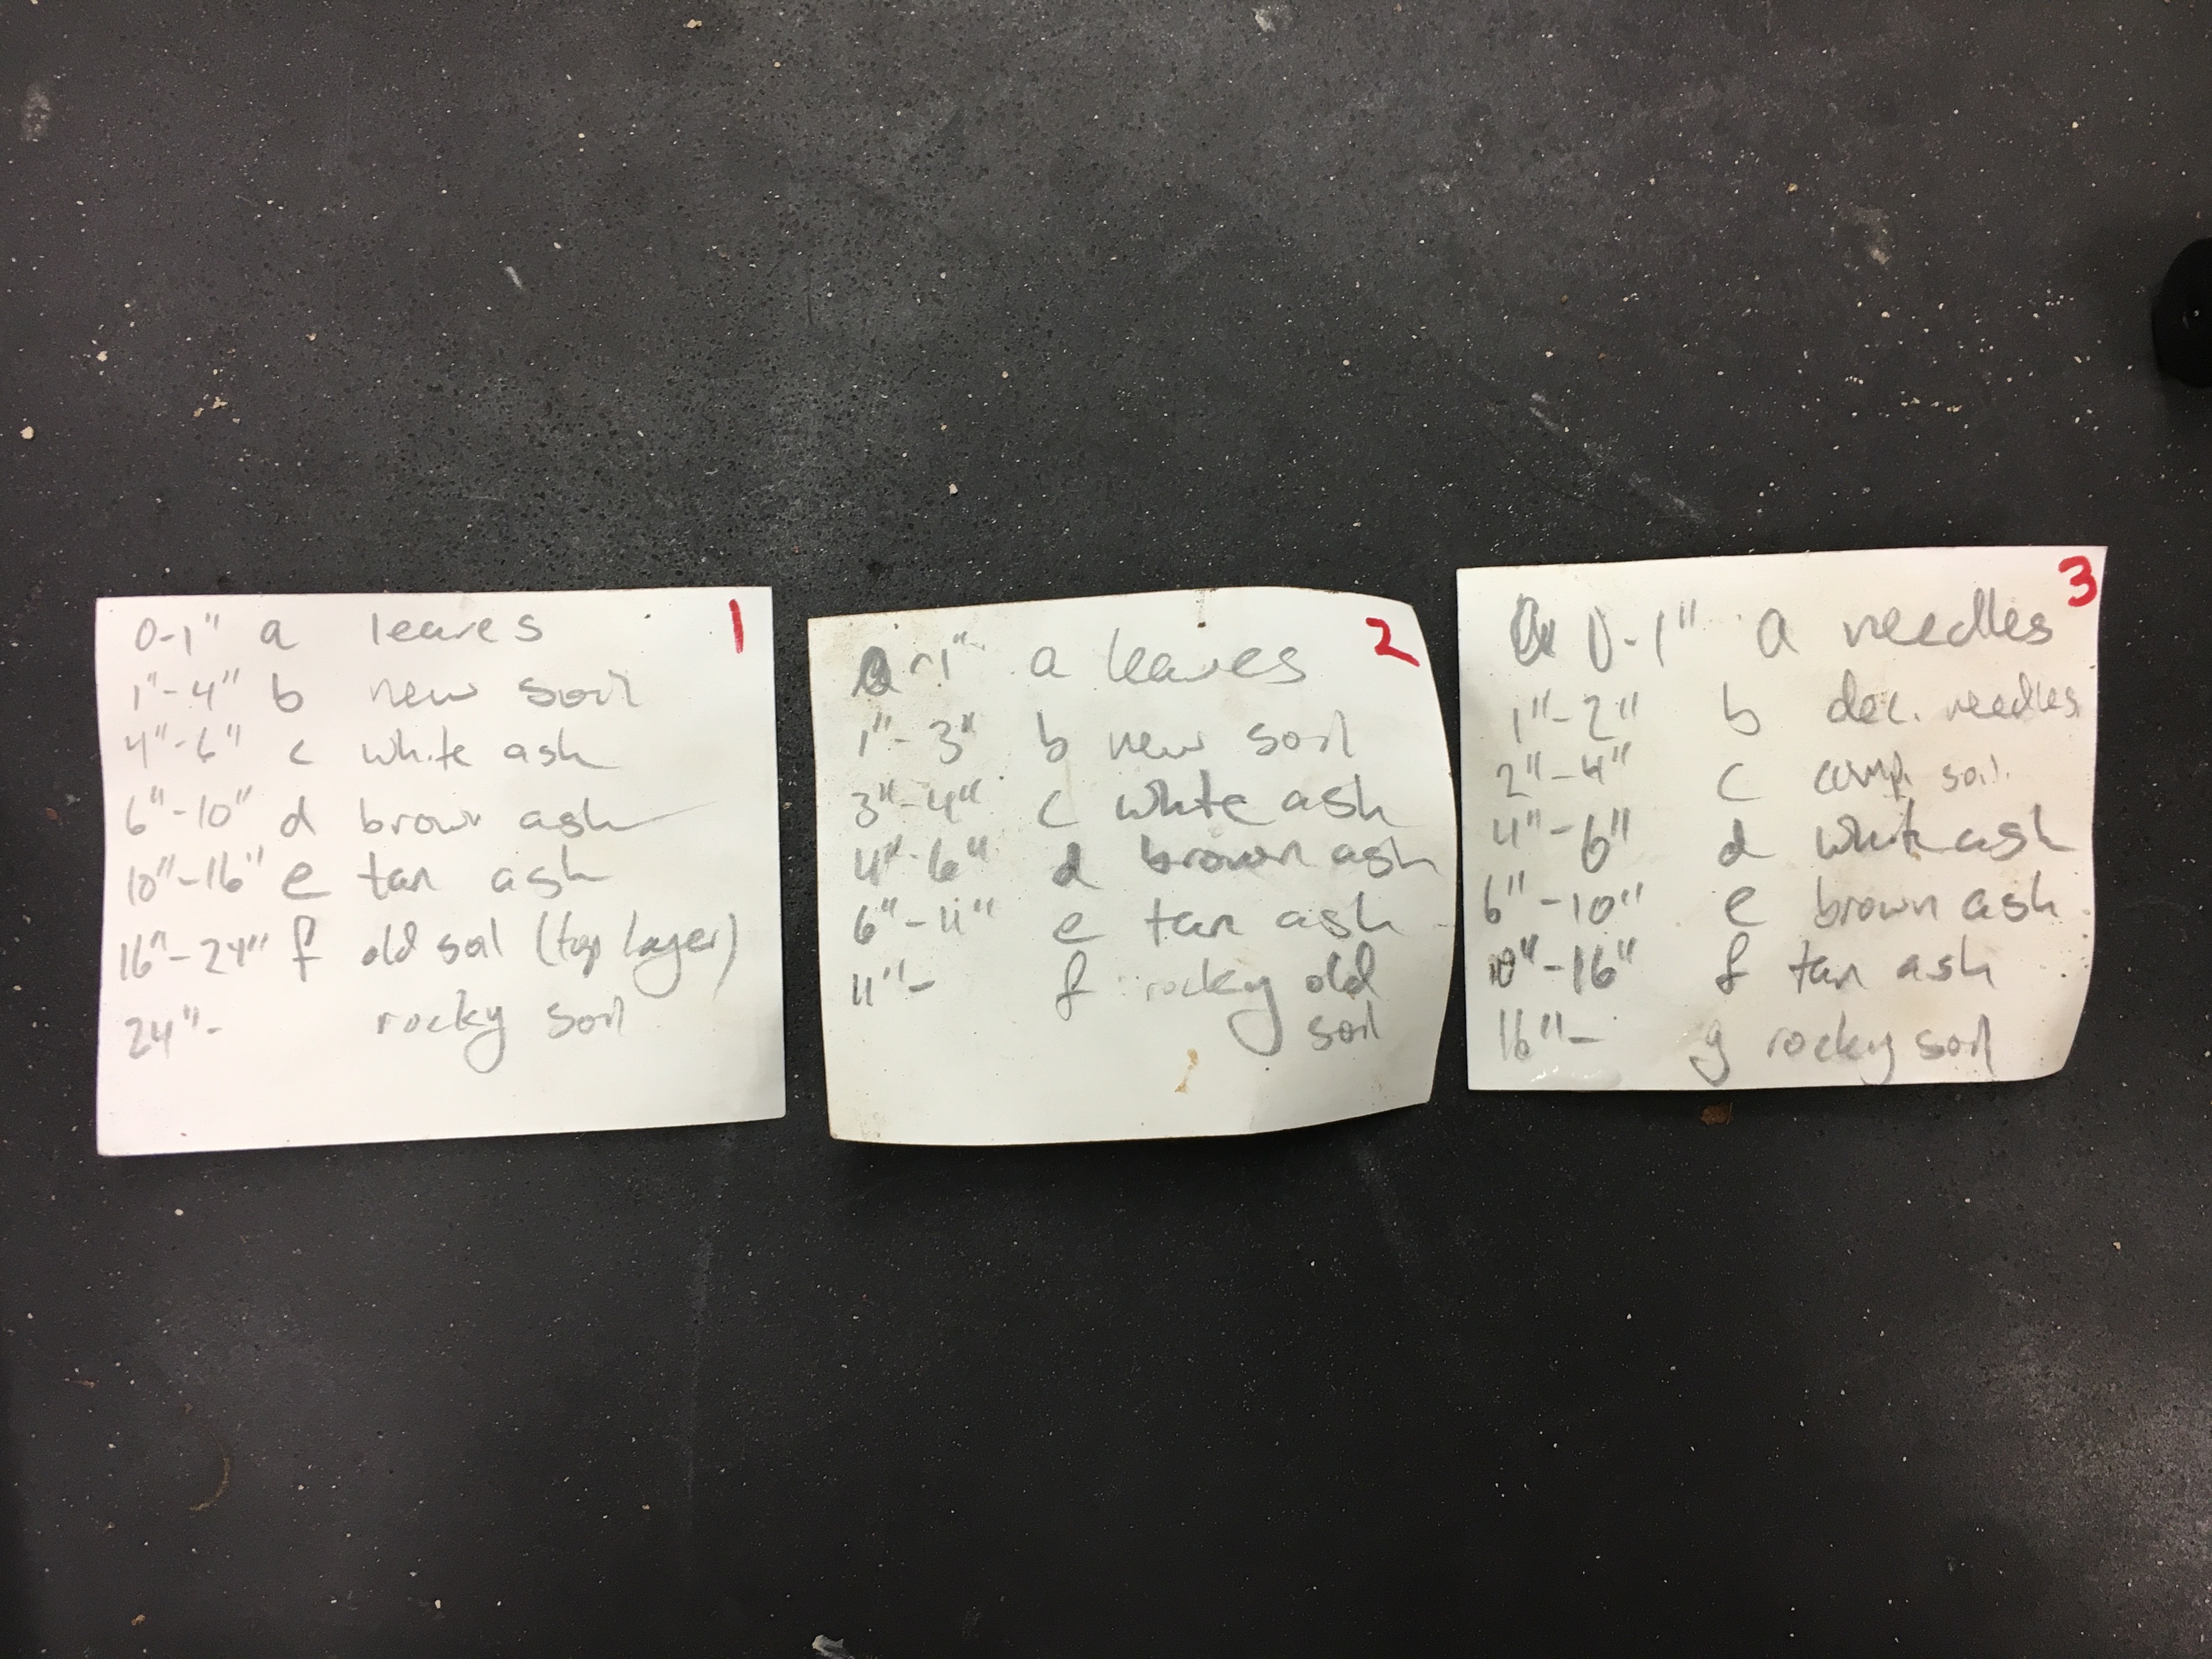 1
0-1" a leaves
1"-4" b new soil
4"-6" c white ash
6"-10" d brown ash
10"-16" e tan ash
16"-24" f old soil (top layer)
24"- rocky soil
2
0-1" a leaves
1"-3" b new soil
3"-4" c white ash
4"-6" d brown ash
6"-11" e tan ash
11"- f rocky old
soil
3
0-1" a needles
1"-2" b dec. needles
2"-4" c comp. soil
4"-6" d white ash
6"-10" e brown ash
10"-16" f tan ash
16"- g rocky soil